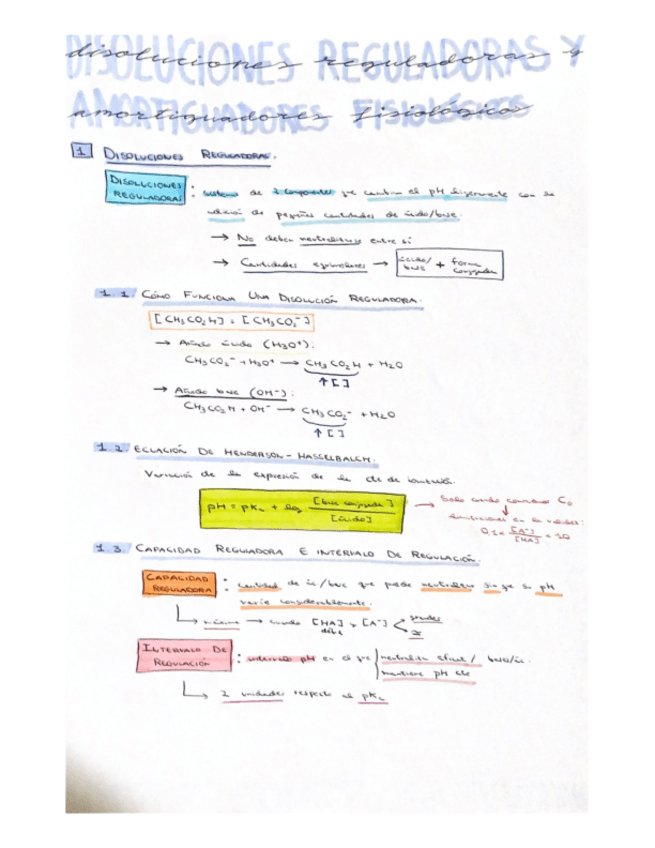 DISOLUCIONES REGULADORAS Y
AMORTIGUADORES FISIOLÓGICOS
disoluciones reguladoras y
amortiguadores fisiológicos
1 DISOLUCIONES REGULADORAS.
DISOLUCIONES REGULADORAS : sistema de 2 componentes que cambian el pH ligeramente con la
adición de pequeñas cantidades de ácido/base.
→ No deben neutralizarse entre sí
→ Cantidades equimolares → ácido/base + forma conjugada
1.1. CÓMO FUNCIONA UNA DISOLUCIÓN REGULADORA.
[CH3CO2H] = [CH3CO2⁻]
→ Añado ácido (H3O⁺):
CH3CO2⁻ + H3O⁺ → CH3CO2H + H2O
↑[ ]
→ Añado base (OH⁻):
CH3CO2H + OH⁻ → CH3CO2⁻ + H2O
↑[ ]
1.2. ECUACIÓN DE HENDERSON-HASSELBALCH.
Variación de la expresión de la cte de ionización.
pH = pKa + log [base conjugada] / [ácido]
→ Solo cuando C0
limitaciones en la validez:
0,1 < [A⁻] / [HA] < 10
1.3. CAPACIDAD REGULADORA E INTERVALO DE REGULACIÓN.
CAPACIDAD REGULADORA : cantidad de ác/base que puede neutralizar sin que su pH
varíe considerablemente.
→ máxima → cuando [HA] y [A⁻] grandes
débil
INTERVALO DE REGULACIÓN : intervalo pH en el que neutraliza eficaz/ base/ác.
mantiene pH cte
→ 2 unidades respecto al pKa